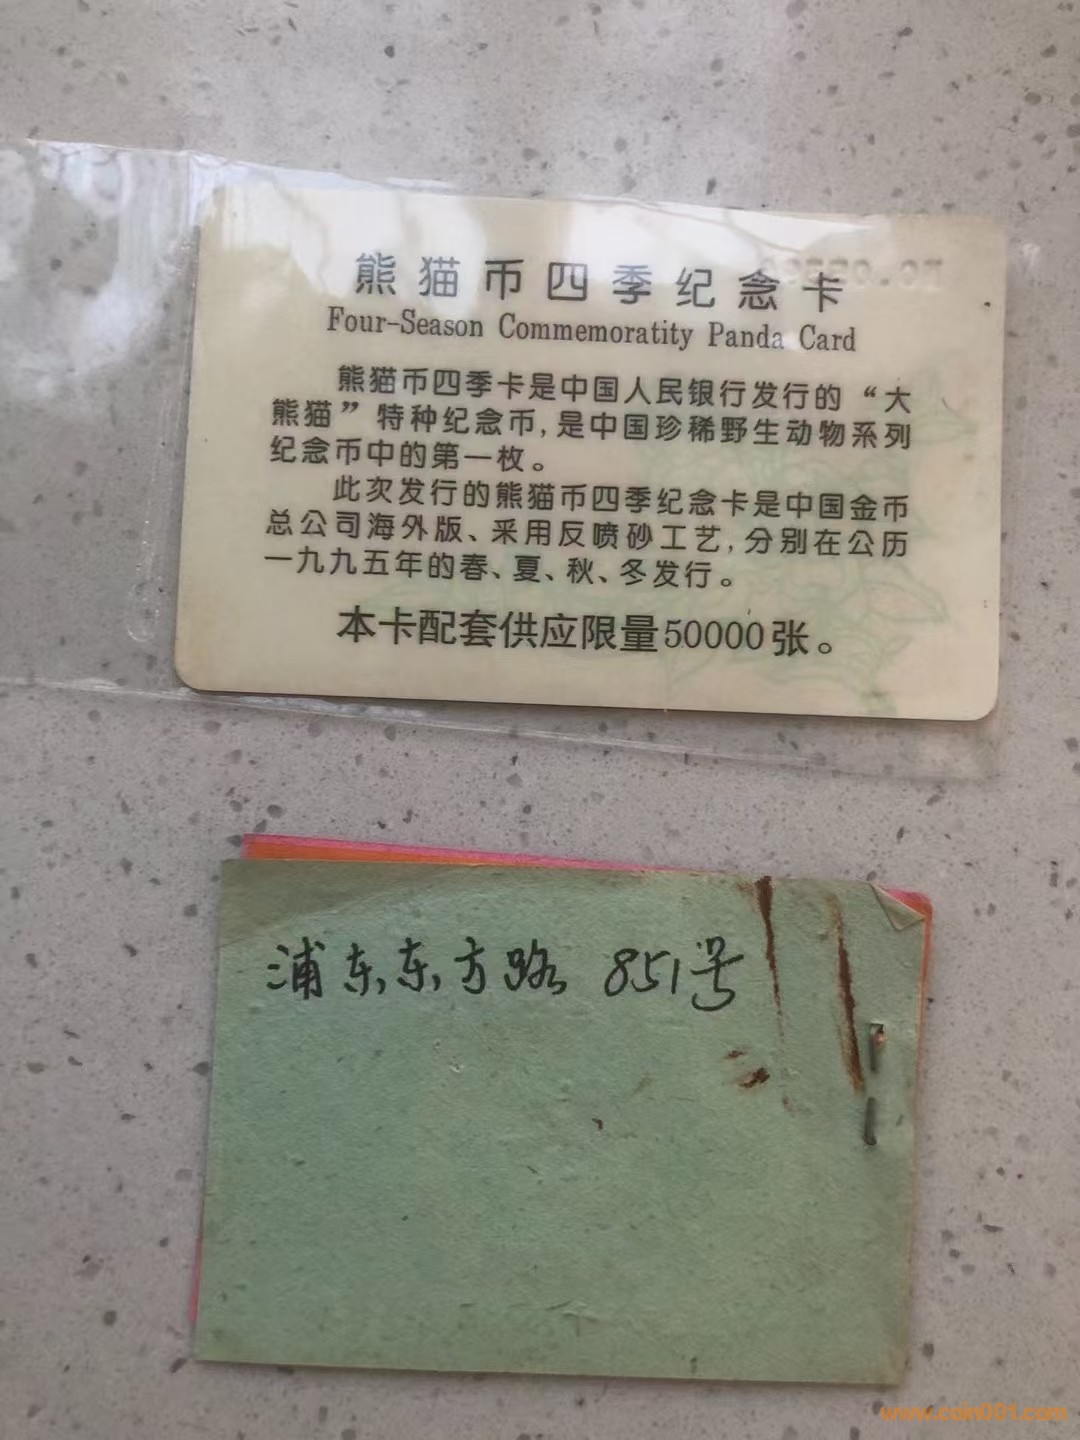 熊猫币四季纪念卡
Four-Season Commemoratity Panda Card
熊猫币四季卡是中国人民银行发行的“大
熊猫”特种纪念币,是中国珍稀野生动物系列
纪念币中的第一枚。
此次发行的熊猫币四季纪念卡是中国金币
总公司海外版、采用反喷砂工艺,分别在公历
一九九五年的春、夏、秋、冬发行。
本卡配套供应限量50000张。
浦东东方路 851号
www.coin001.com